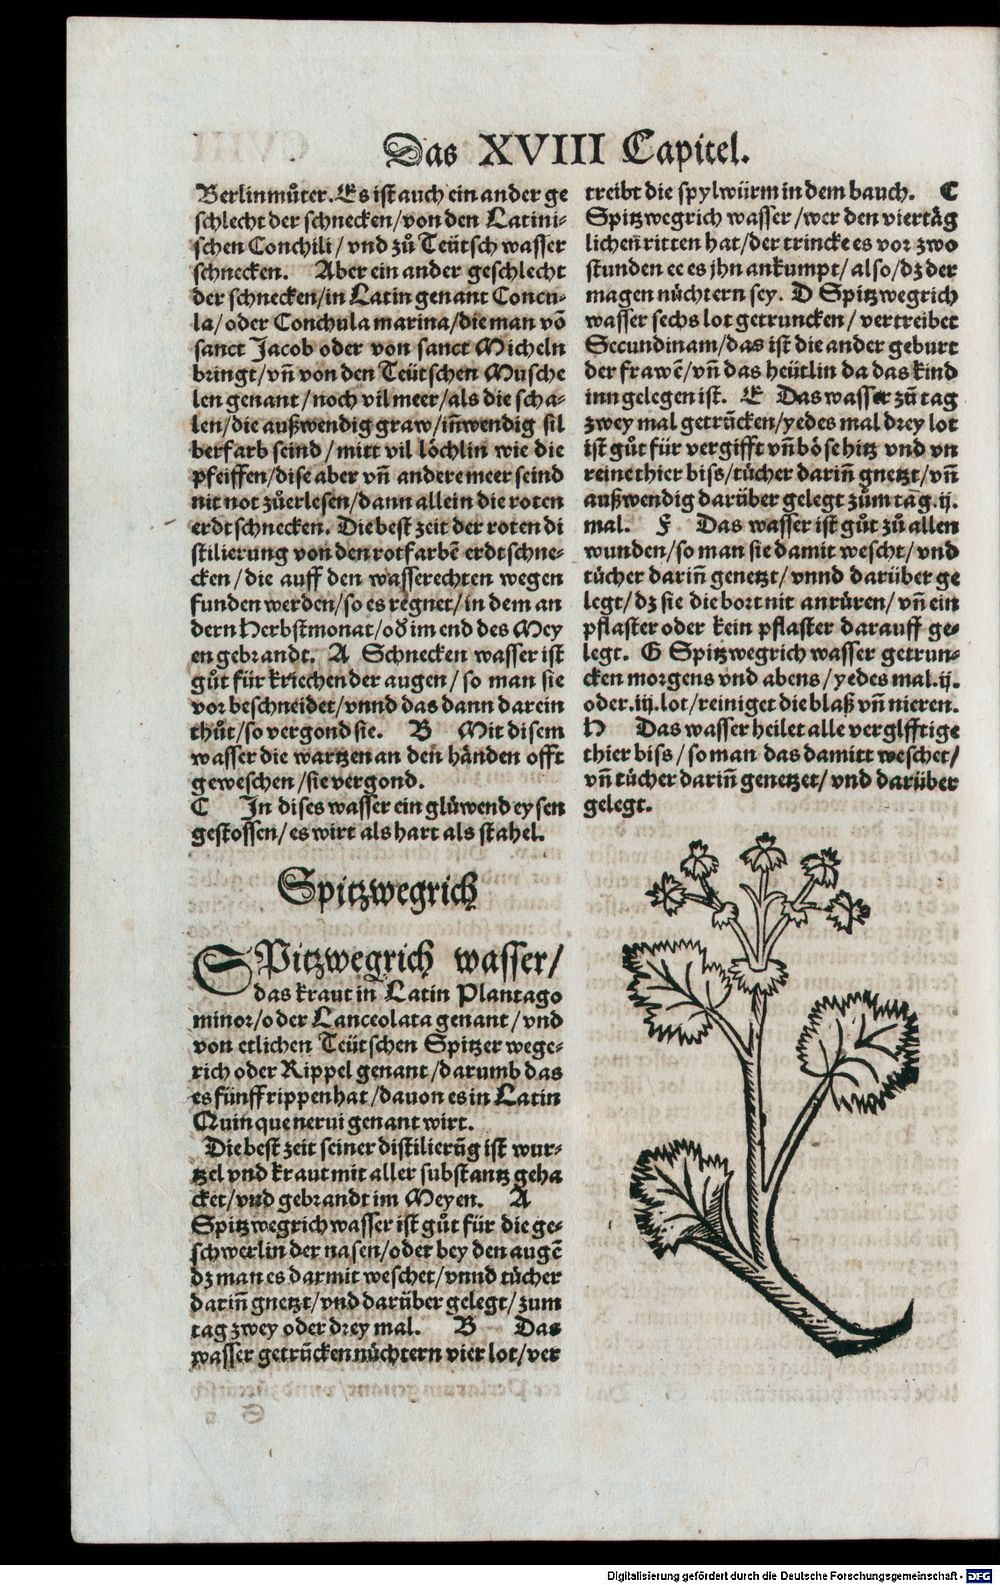 Das XVIII Capitel.
Berlinmůter. Es ist auch ein ander ge
schlecht der schnecken/von den Latini-
schen Conchili/vnd zů Teütsch wasser
schnecken. Aber ein ander geschlecht
der schnecken/in Latin genant Concu-
la/oder Conchula marina/die man võ
sanct Jacob oder von sanct Micheln
bringt/vñ von den Teütschen Musche
len genant/noch vil meer/als die scha-
len/die außwendig graw/iñwendig sil
berfarb seind/mitt vil löchlin wie die
pfeiffen/dise aber vñ andere meer seind
nit not zůerlesen/dann allein die roten
erdtschnecken. Die best zeit der roten di
stilierung von den rotfarbẽ erdtschne-
cken/die auff den wasserechten wegen
funden werden/so es regnet/in dem an
dern Herbstmonat/oď im end des Mey
en gebrandt. A Schnecken wasser ist
gůt für kriechen der augen/so man sie
vor beschneidet/vnnd das dann darein
thůt/so vergond sie. B Mit disem
wasser die wartzen an den händen offt
geweschen/sie vergond.
C In dises wasser ein glüwend eysen
gestossen/es wirt als hart als stahel.
Spitzwegrich
SPitzwegrich wasser/
das kraut in Latin Plantago
minor/oder Lanceolata genant/vnd
von etlichen Teütschen Spitzer wege-
rich oder Rippel genant/darumb das
es fünff rippen hat/dauon es in Latin
Quinque nerui genant wirt.
Die best zeit seiner distilierũg ist wur-
tzel vnd kraut mit aller substantz geha
cket/vnd gebrandt im Meyen. A
Spitzwegrich wasser ist gůt für die ge-
schwerlin der nasen/oder bey den augẽ
dz man es darmit weschet/vnnd tücher
dariñ gnetzt/vnd darüber gelegt/zum
tag zwey oder drey mal. B Das
wasser getrũcken nüchtern vier lot/ver
treibt die spylwürm in dem bauch. C
Spitzwegrich wasser/wer den viertäg
lichen ritten hat/der trincke es vor zwo
stunden ee es jhn ankumpt/also/dz der
magen nüchtern sey. D Spitzwegrich
wasser sechs lot getruncken/vertreibet
Secundinam/das ist die ander geburt
der frawẽ/vñ das heütlin da das kind
inn gelegen ist. E Das wasser zů tag
zwey mal getrũcken/yedes mal drey lot
ist gůt für vergifft vñ böse hitz vnd vn
reine thier biss/tücher dariñ gnetzt/vñ
außwendig darüber gelegt zům tag .ij.
mal. F Das wasser ist gůt zů allen
wunden/so man sie damit wescht/vnd
tücher dariñ genetzt/vnnd darüber ge
legt/dz sie die bort nit anrüren/vñ ein
pflaster oder kein pflaster darauff ge-
legt. G Spitzwegrich wasser getrun-
cken morgens vnd abens/yedes mal .ij.
oder .iij. lot/reiniget die blaß vñ nieren.
H Das wasser heilet alle verglfftige
thier biss/so man das damitt weschet/
vñ tücher dariñ genetzet/vnd darüber
gelegt.
Digitalisierung gefördert durch die Deutsche Forschungsgemeinschaft - DFG